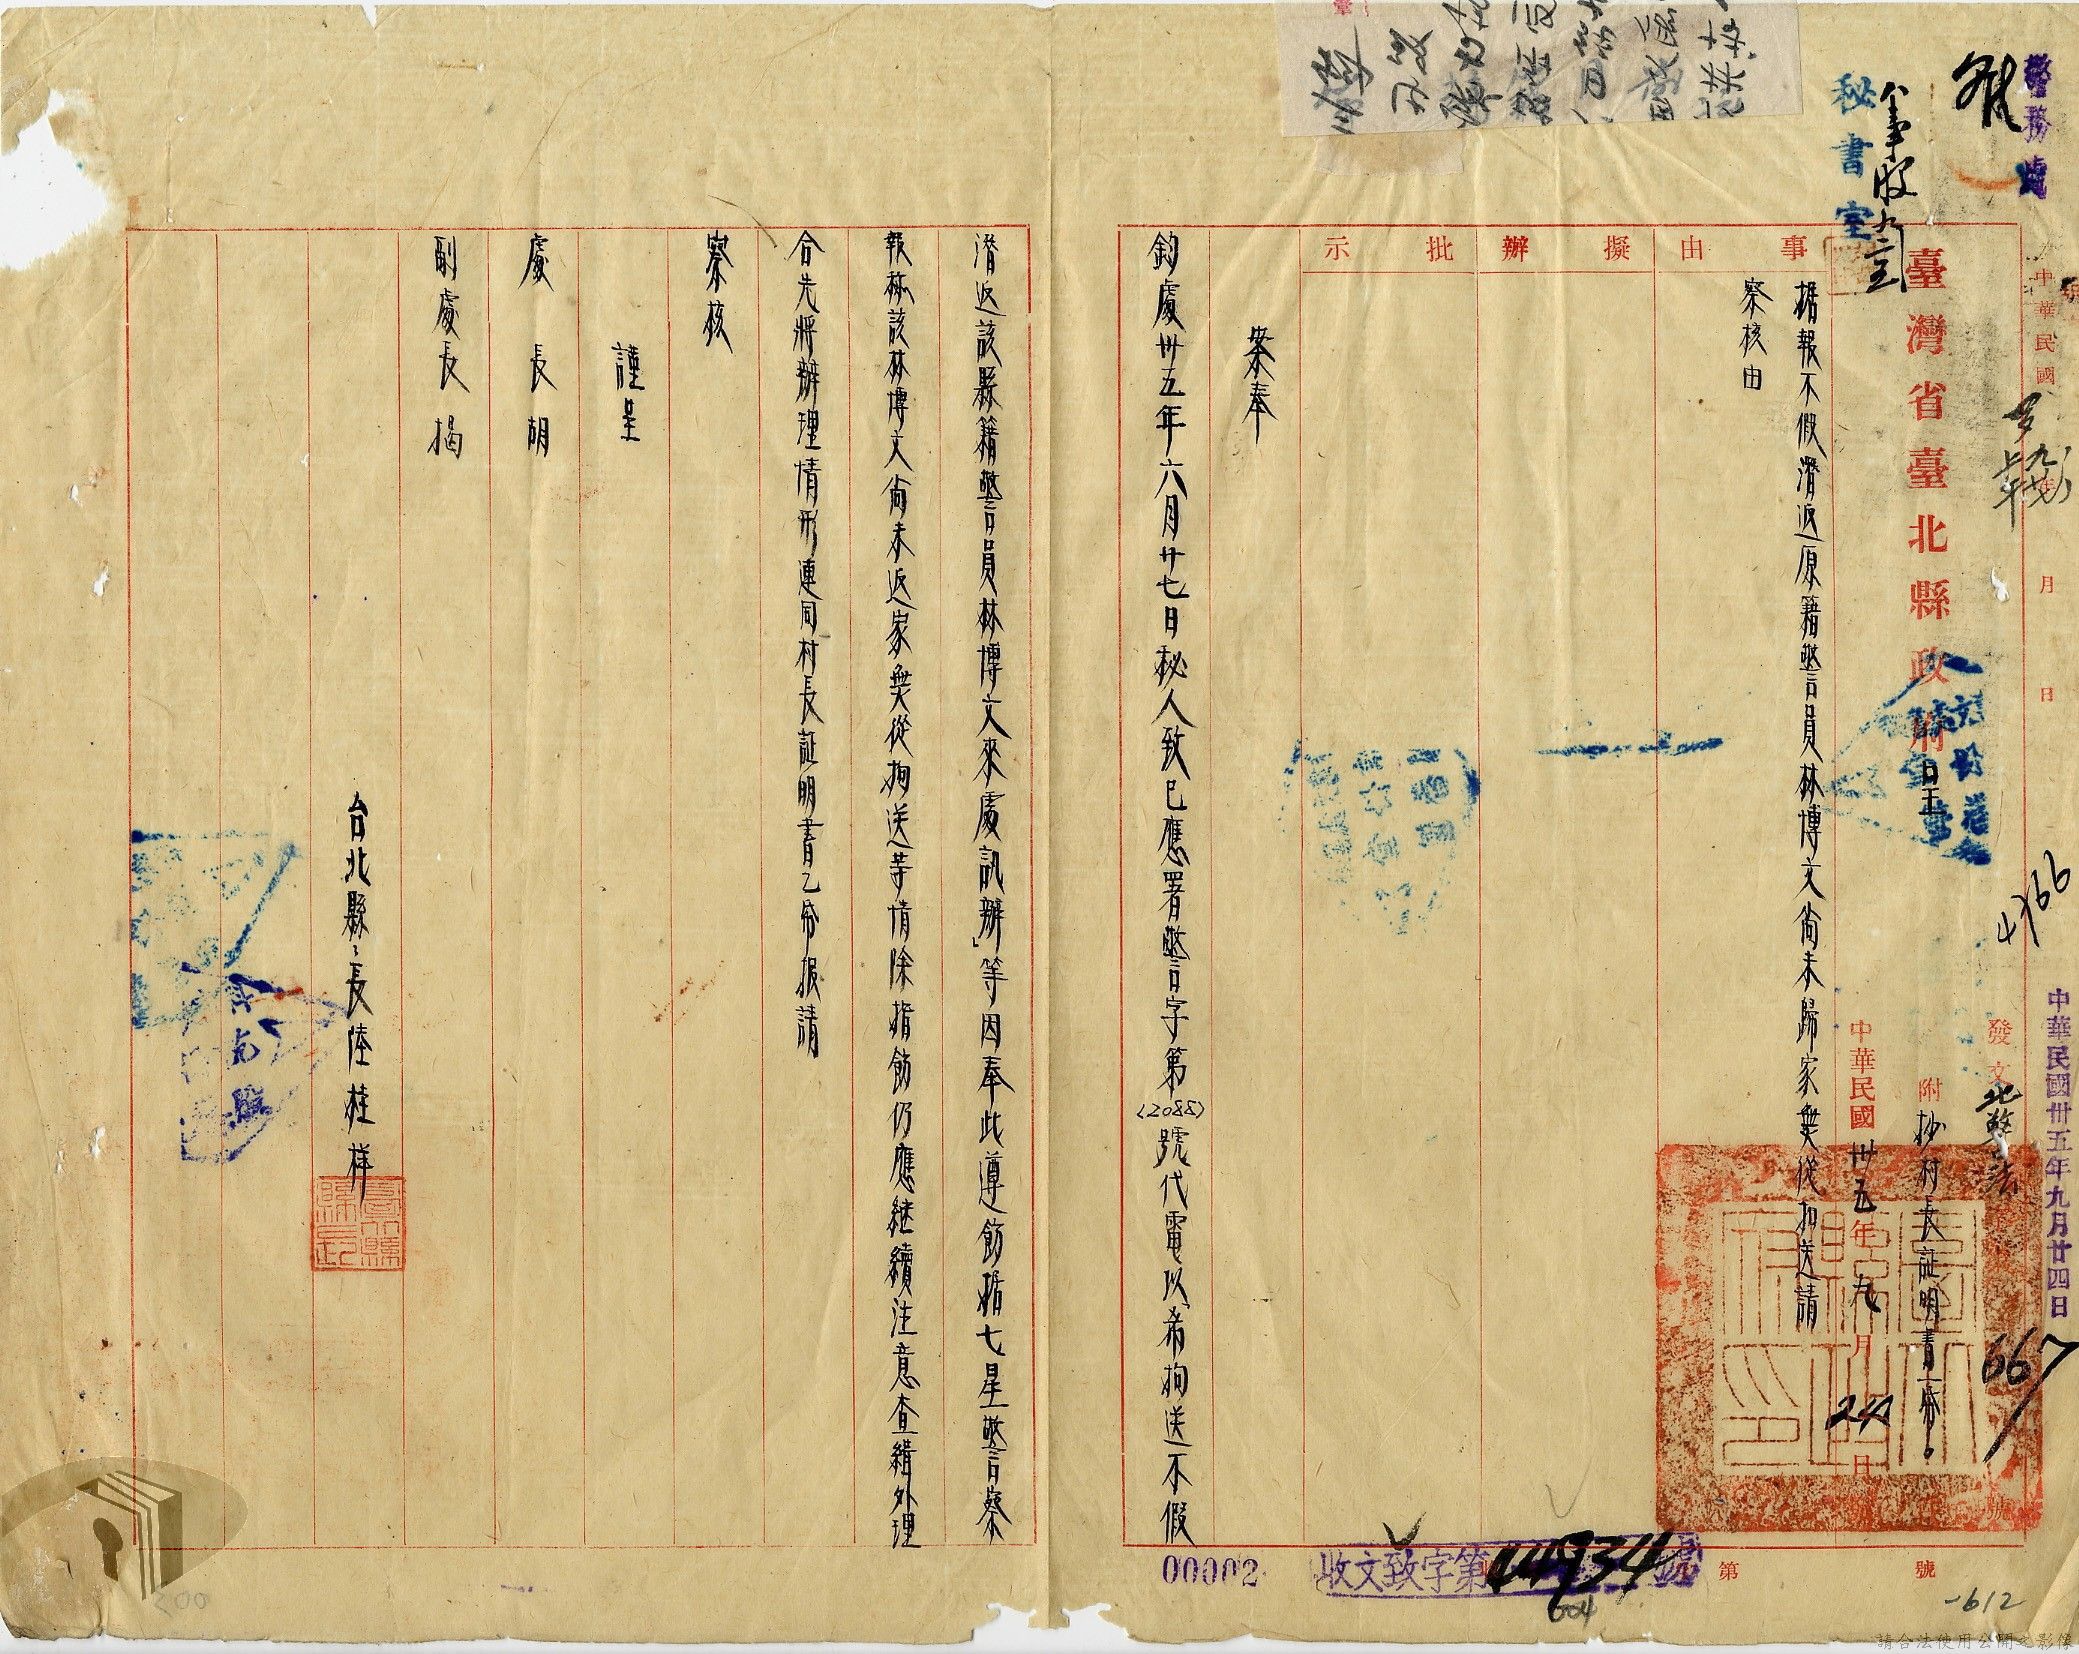 警務處
秘書室
人事股
中華民國 年 月 日
中華民國卅五年九月廿四日
臺灣省臺北縣政府呈
發文
北警法
667
號
附抄村長証明書一份。
中華民國卅五年九月24日
事由
擬辦
批示
据報不假潛返原籍警員林博文尚未歸家無從扣送請
察核由
案奉
鈞處卅五年六月廿七日秘人致巳應署警字第(2088)號代電以「希拘送不假
潛返該縣籍警員林博文來處訊辦」等因奉此遵飭据七星警察
報称該林博文尚未返家無從拘送等情除指飭仍應継續注意查緝外理
合先將辦理情形連同村長証明書乙份报請
察核
謹呈
處長胡
副處長揭
台北縣々長陸桂祥
收文致字第44934號
00002
604
第 號
-612
200
請合法使用公開之影像